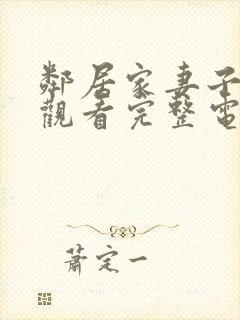 鄰居家妻子
觀看完整電
蕭定一